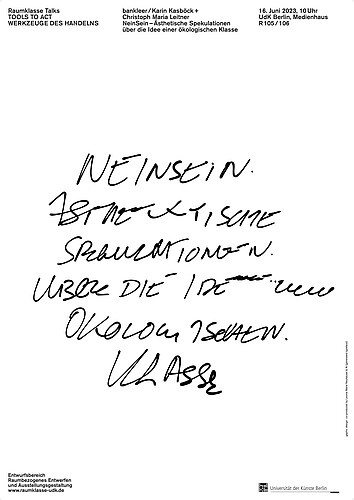 Raumklasse Talks
TOOLS TO ACT
WERKZEUGE DES HANDELNS
bankleer/Karin Kasböck +
Christoph Maria Leitner
NeinSein – Ästhetische Spekulationen
über die Idee einer ökologischen Klasse
16. Juni 2023, 10 Uhr
UdK Berlin, Medienhaus
R 105 / 106
NEINSEIN.
ÄSTHETISCHE
SPEKULATIONEN.
ÜBER DIE IDEE EINER
ÖKOLOGISCHEN.
KLASSE
Entwurfsbereich
Raumbezogenes Entwerfen
und Ausstellungsgestaltung
www.raumklasse-udk.de
Universität der Künste Berlin